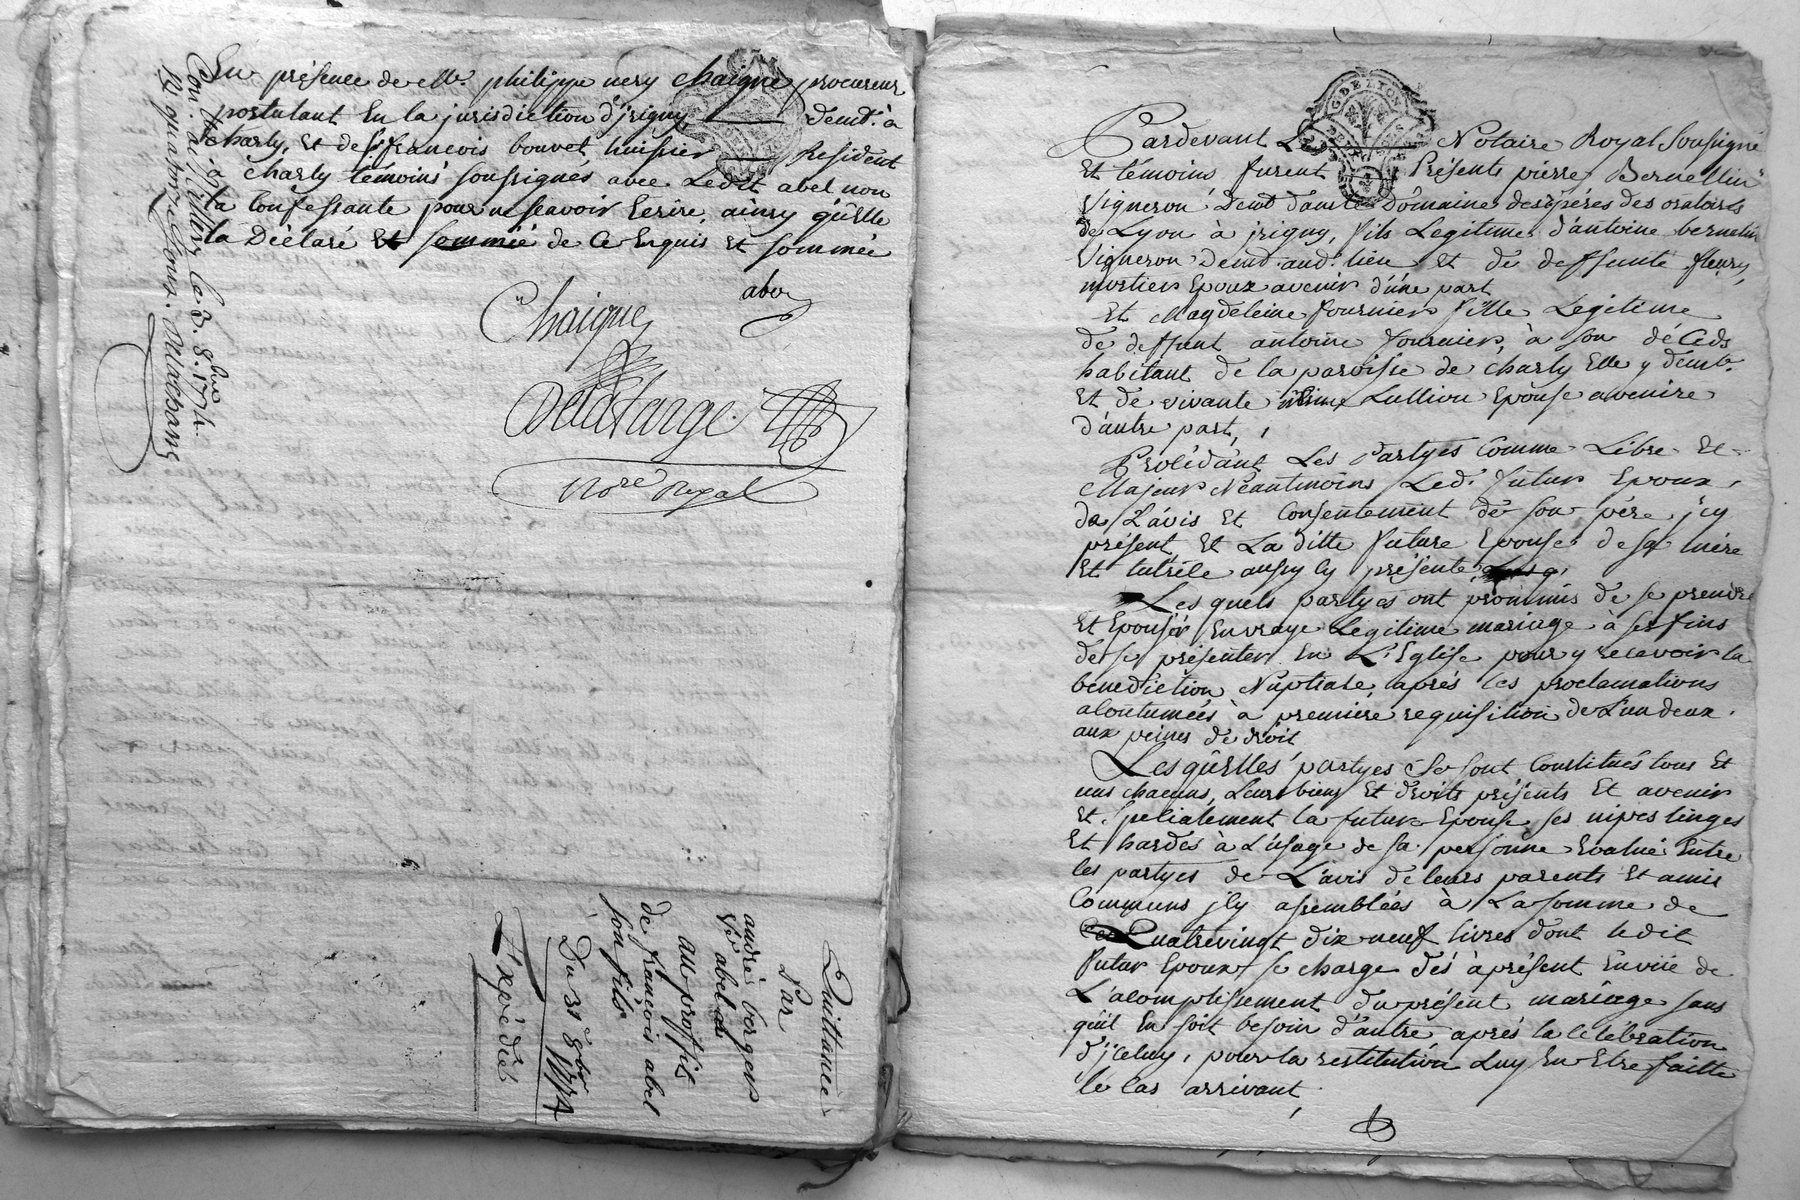 En présence de Me. philippe nery chaigne procureur
postulant En la jurisdiction d'jrigny demt. à
charly, Et de Sr. francois bouvet huissier Resident
à charly témoins soussignés, avec Ledit abel non
la Confessante pour ne scavoir Ecrire, ainsy qu'Elle
la Déclaré Et sommée de Ce Enquis Et sommée
abel
Chaigne
Delafarge
Nore Royal
Con. à millery le 3. 9bre 1774.
quatorze sous.
Quittance
Par
andré berger
Vve abel
au proffit
de francois abel
son fils
Du 31 8bre 1774
Expédié
G. DE LYON
Pardevant Le Notaire Royal Soussigné
Et témoins furent Présents pierre Bernellin
Vigneron demt dans le Domaine des péres des oratoires
de Lyon à jrigny, fils Legitime d'antoine bernelin
Vigneron demt. aud. lieu Et de deffunte fleury
mortier Epoux avenir d'une part
Et Magdeleine fournier fille Legitime
de deffunt antoine fournier, à son décéds
habitant de la paroisse de charly Elle y demte.
Et de vivante Lullion Epouse avenire
d'autre part,
Procédant Les Partyes Comme Libre Et
Majeur Néantmoins Led. futur Epoux,
de L'avis Et Consentement de son pére jcy
présent, Et La ditte future Epouse de sa mére
Et tutrice aussy cy présente
Les quels partyes ont prommis de se prendre
Et Epouser En vraye Legitime mariage à ses fins
de se présenter En L'Eglise pour y recevoir la
benediction Nuptiale, aprés les proclamations
acoutumées à premiere requisition de L'un deux
aux peines de droit
Lesquelles partyes Se sont Constitués tous Et
uns chacuns, Leurs biens Et droits présents Et avenir
Et Specialement la future Epouse ses nipes linges
Et hardes à L'usage de sa personne Evalué Entre
les partyes de L'avis de leurs parents Et amis
Communs jcy assemblées à La somme de
Quatrevingt dix neuf livres dont ledit
futur Epoux se charge dés àprésent En vüe de
L'acomplissement du présent mariage sans
qu'il En soit besoin d'autre aprés la célébration
d'jceluy, pour la restitution Luy En Etre faitte
le Cas arrivant